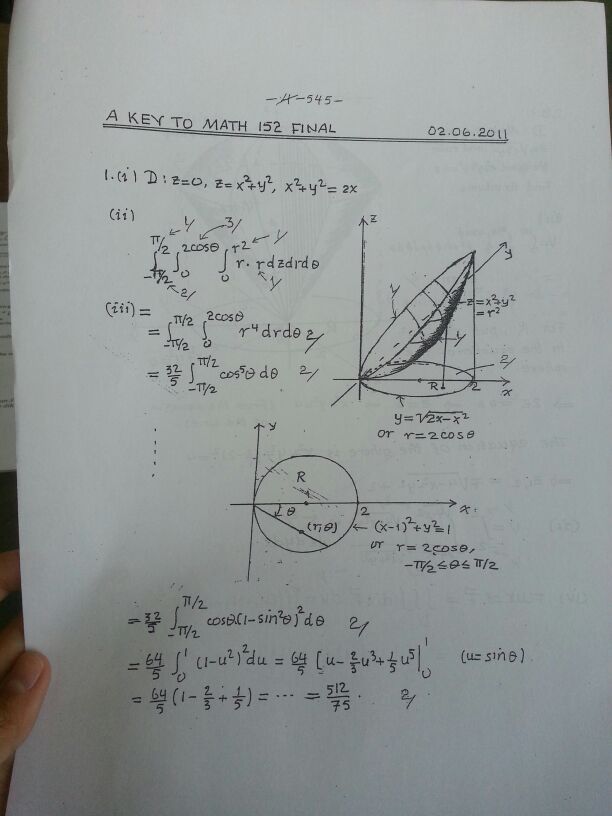 -A-545-
A KEY TO MATH 152 FINAL 02.06.2011
1.(i) D: z=0, z=x²+y², x²+y²=2x
(ii)
∫_{-π/2}^{π/2} ∫_0^{2cosθ} ∫_0^{r²} r·r dz dr dθ
1/ 3/ 1/
2/ 1/
(iii) =
= ∫_{-π/2}^{π/2} ∫_0^{2cosθ} r⁴ dr dθ 2/
= 32/5 ∫_{-π/2}^{π/2} cos⁵θ dθ 2/
z
y
1/
z=x²+y²
=r²
1/
2/
R
2
x
y=√(2x-x²)
or r=2cosθ
y
R
θ
2
x
(r,θ)
(x-1)²+y²=1
or r=2cosθ,
-π/2≤θ≤π/2
= 32/5 ∫_{-π/2}^{π/2} cosθ(1-sin²θ)² dθ 2/
= 64/5 ∫_0^1 (1-u²)² du = 64/5 [u-2/3u³+1/5u⁵|_0^1 (u=sinθ)
= 64/5 (1-2/3+1/5) = ... = 512/75. 2/